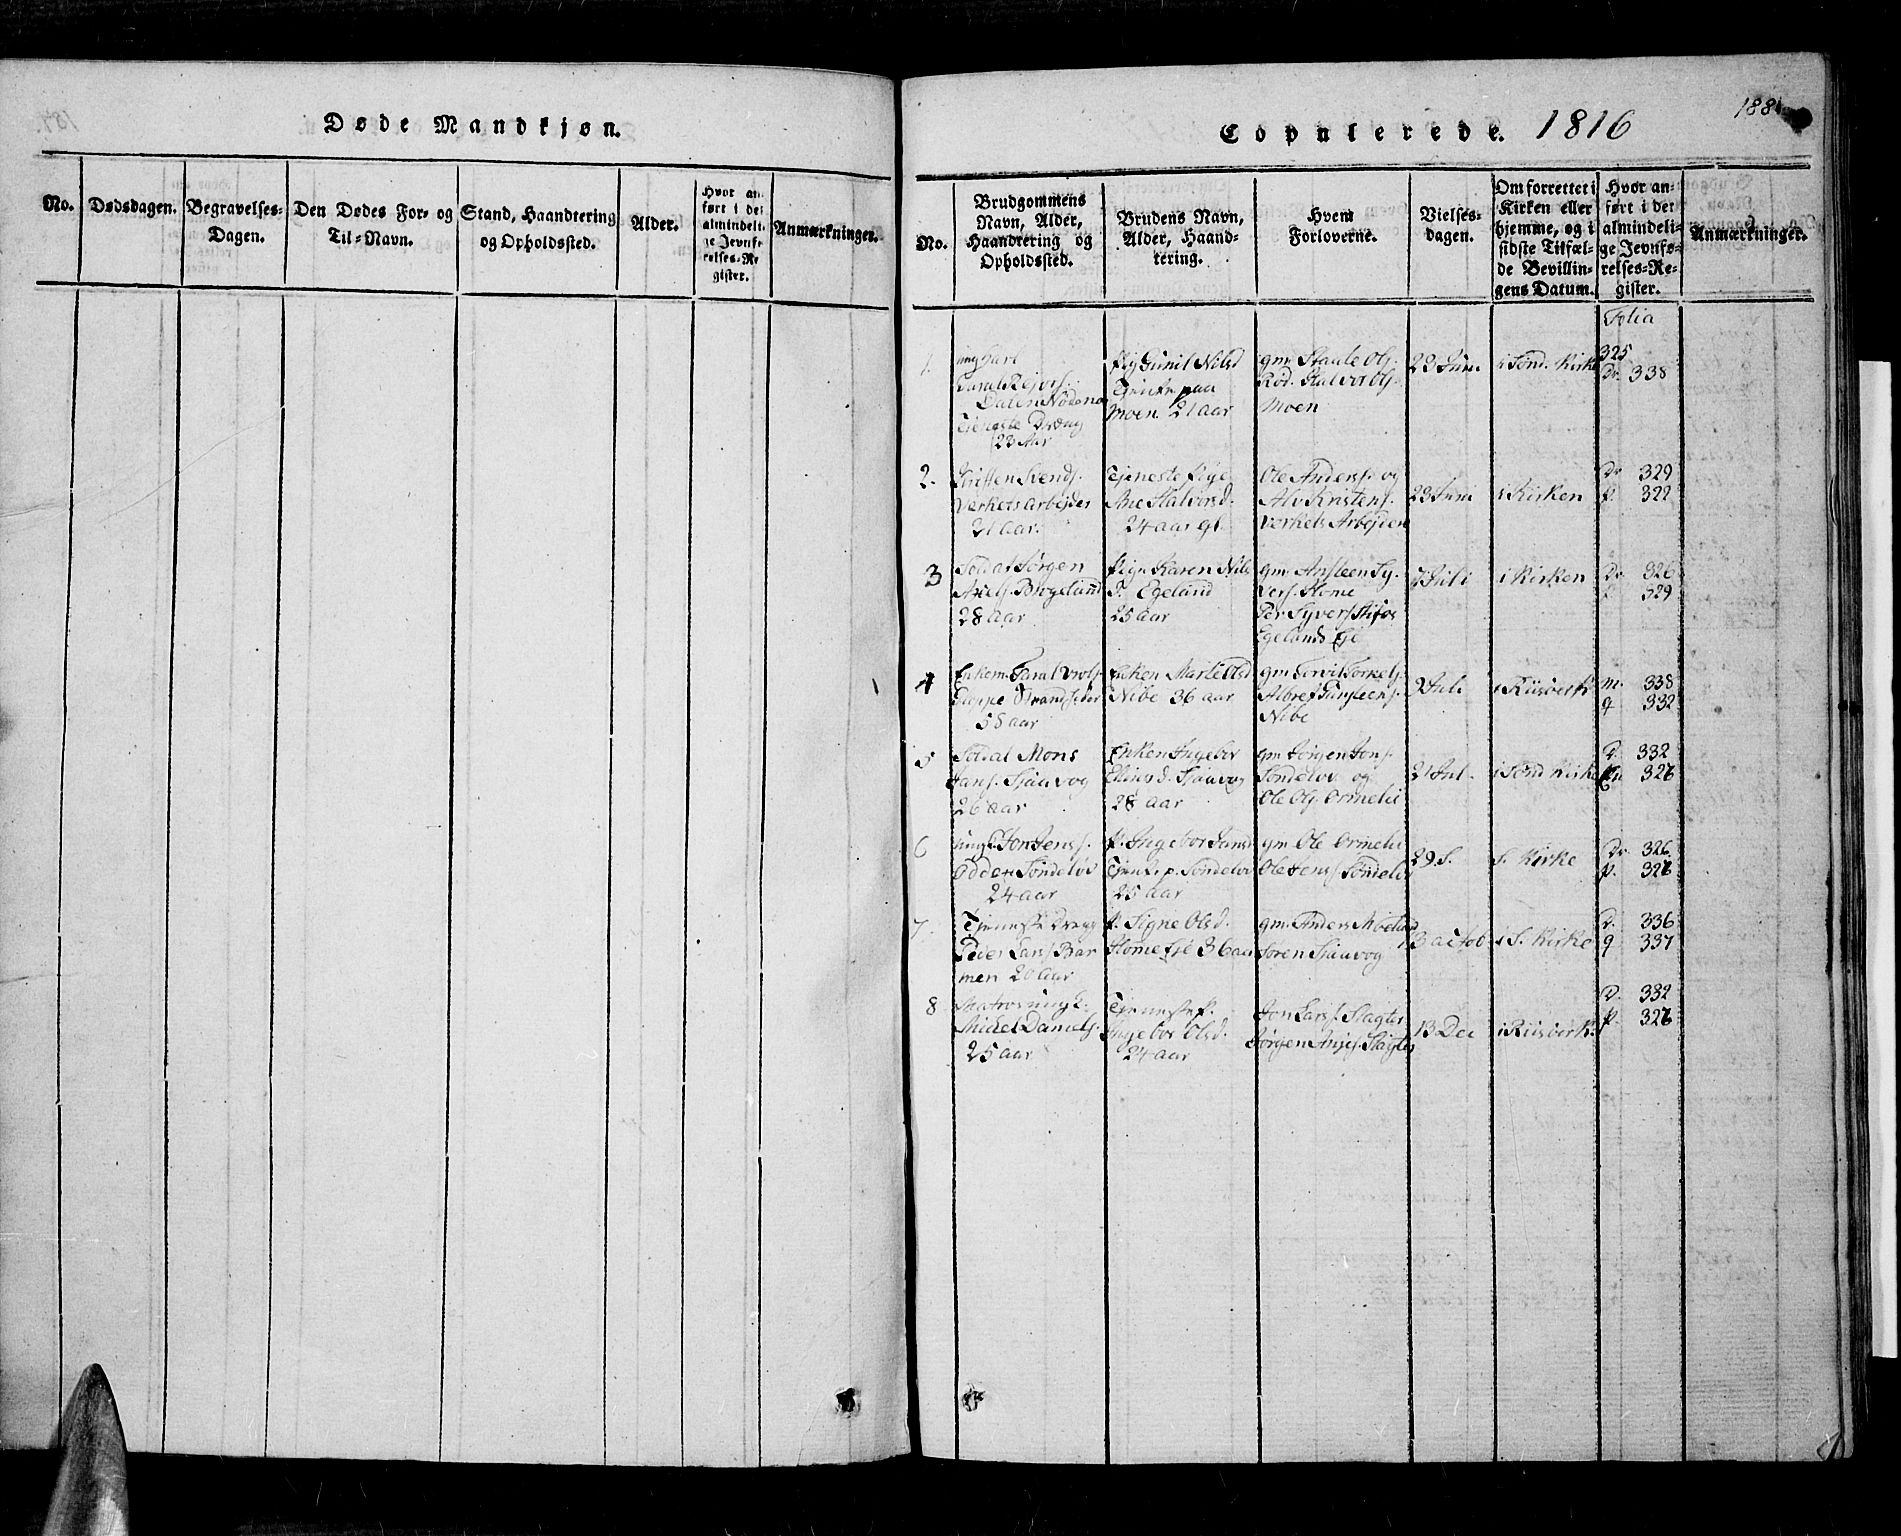 Døde Mandkjøn.
No.
Dødsdagen.
Begravelses-
Dagen.
Den Dødes For- og
Til-Navn.
Stand, Haandtering
og Opholdssted.
Alder.
Hvor an-
ført i det
almindeli-
ge Jevnfø-
relses-Re-
gister.
Anmærkninger.
Copulerede. 1816
188
No.
Brudgommens
Navn, Alder,
Haandtering og
Opholdssted.
Brudens Navn,
Alder, Haand-
tering.
Hvem
Forloverne.
Vielses-
dagen.
Om forrettet i
Kirken eller
hjemme, og i
sidste Tilfæl-
de Bevillin-
gens Datum.
Hvor an-
ført i det
almindeli-
ge Jevnfø-
relses-Re-
gister.
Anmærkninger.
Folia
1.
ungkarl
Dalen
Tieneste Dreng
23 Aar
Pig Gunil Nilsd
Tjenste paa
Moen 21 aar
gm. Staale Ols.
Rød. Halvor Ols.
Moen
23 Juni
i Sønd. Kirke
325
Dr. 338
2.
Christen Svends.
Verkets Arbejder
21 aar.
Tjeneste Pige
Ane Halvorsd.
24 aar gl.
Ole Anders. og
Alv Kristens.
Verkets Arbejdere
23 Juni
i Kirken
Dr 329
p. 322
3
Soldat Jørgen
Axels. Brogelund
28 aar
Pige Karen Nils
D. Egeland
25 aar
gm. Ansteen Sy-
vers. Home
Per Syvers.
Egelands Eje
7 Juli
i Kirken
Dr 326
p 329
4
Enkem.
58 aar
Enken Marte Olsd
Nibe 36 aar
gm Tarvil Torkels.
Nibe
Juli
i Riisöer K.
m. 338
q 332
5
Soldat Mons
Hans. Sjaavog
26 aar
Enken Ingebor
Sjaavog
28 aar
gm Jørgen Jons.
Søndeløv og
Ole Ols. Ormelii
21 Jul.
i Sønd Kirke
D. 332
En 326
6
ungk. Jon Jens.
Odden Søndeløv
24 aar
P. Ingebor Jansd
Tjenste p. Søndeløv
25 aar
gm Ole Ormelii
Ole Jens. Søndeløv
29 S.
S. Kirke
Dr 326
p. 326
7.
Tjeneste Dreng
Peder Lars. Bar
men 20 aar
P. Signe Olsd.
Home Eje 36 aar
gm. Anders Moeland
Søren Sjaavog
13 actob
i S. Kirke
D. 336
q 337
8
Matros ungk.
Mickel Daniels.
25 aar
Tjeneste P.
Ingebor Olsd.
24 aar
Jon Lars. Slagter
Jørgen Slagter
13 Dec
i Riisöer K.
D. 332
p. 326